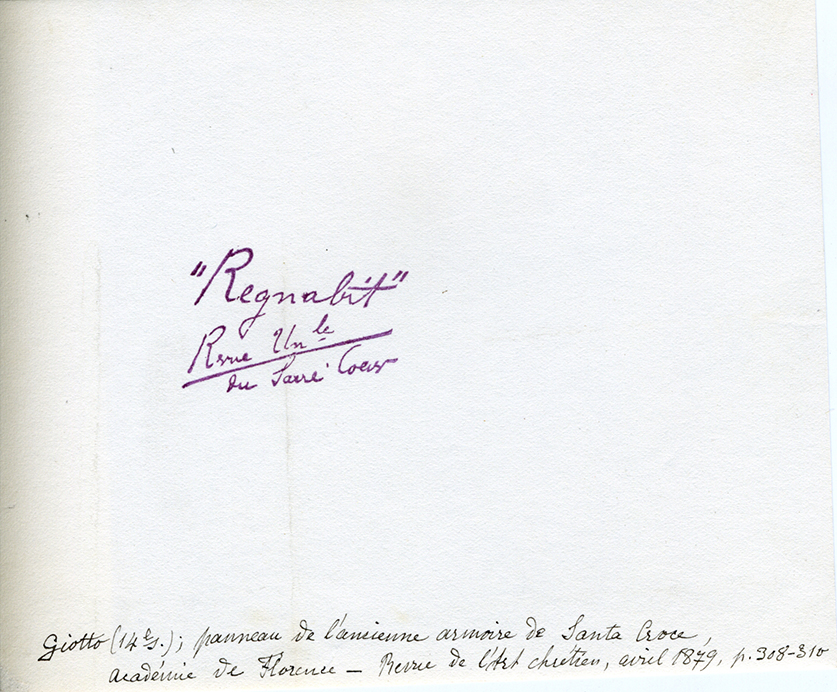 "Regnabit"
Revue Un le
du Sacré Coeur
Giotto (14e s.); panneau de l'ancienne armoire de Santa Croce,
académie de Florence — Revue de l'Art chrétien, avril 1879, p. 308-310